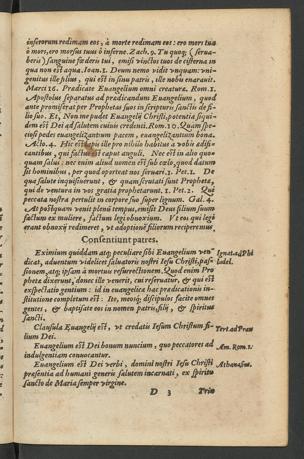 inferorum redimam eos, à morte redimam eos: ero mors tua
ò mors, ero morsus tuus ò inferne. Zach. 9. Tu quoq; (serua-
beris) sanguine fœderis tui, emisi vinctos tuos de cisterna in
qua non est aqua. Ioan. 1. Deum nemo vidit vnquam: vni-
genitus ille filius, qui est in sinu patris, ille nobis enarauit.
Marci 16. Prædicate Euangelium omni creaturæ. Rom. 1.
Apostolus separatus ad prædicandum Euangelium, quod
ante promiserat per Prophetas suos in scripturis sanctis de fi-
lio suo. Et, Non me pudet Euangelij Christi, potentia siqui-
dem est Dei ad salutem cuiuis credenti. Rom. 10. Quam spe-
ciosi pedes euangelizantium pacem, euangelizantium bona.
Acto. 4. Hic est lapis ille pro nihilo habitus a vobis ædifi-
cantibus, qui factus est caput anguli. Nec est in alio quo-
quam salus: nec enim aliud nomen est sub cœlo, quod datum
sit hominibus, per quod oporteat nos seruari. 1. Pet. 1. De
qua salute inquisiuerunt, & quam scrutati sunt Prophetæ,
qui de ventura in vos gratia prophetarunt. 1. Pet. 2. Qui
peccata nostra pertulit in corpore suo super lignum. Gal. 4.
At postquam venit plenū tempus, emisit Deus filium suum
factum ex muliere, factum legi obnoxium. Vt eos qui legi
erant obnoxij redimeret, vt adoptionē filiorum reciperemus.
Consentiunt patres.
Eximium quiddam atq; peculiare sibi Euangelium ven-
dicat, aduentum videlicet saluatoris nostri Iesu Christi, pas-
sionem, atq; ipsam à mortuis resurrectionem. Quod enim Pro
phetæ dixerunt, donec ille venerit, cui reseruatur, & qui est
expectatio gentium: id in euangelica hac prædicationis in-
stitutione completum est: Ite, moxq; discipulos facite omnes
gentes, & baptisate eos in nomen patris, filij, & spiritus
sancti.
Ignat. ad Phi
ladel.
Clausula Euangelij est, vt credatis Iesum Christum fi-
lium Dei.
Tert. ad Prax
Euangelium est Dei bonum nuncium, quo peccatores ad
indulgentiam conuocantur.
Am. Rom. 1.
Euangelium est Dei verbi, domini nostri Iesu Christi
præsentia ad humani generis salutem incarnati, ex spiritu
sancto de Maria semper virgine.
Athanasius.
D 3